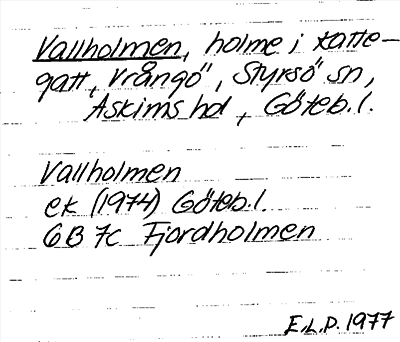 Vallholmen, holme i Katte-
gatt, Vrångö, Styrsö sn,
Askims hd, Göteb. l.
Vallholmen
ek (1974) Göteb. l.
6B 7c Fjordholmen
E.L.P. 1977